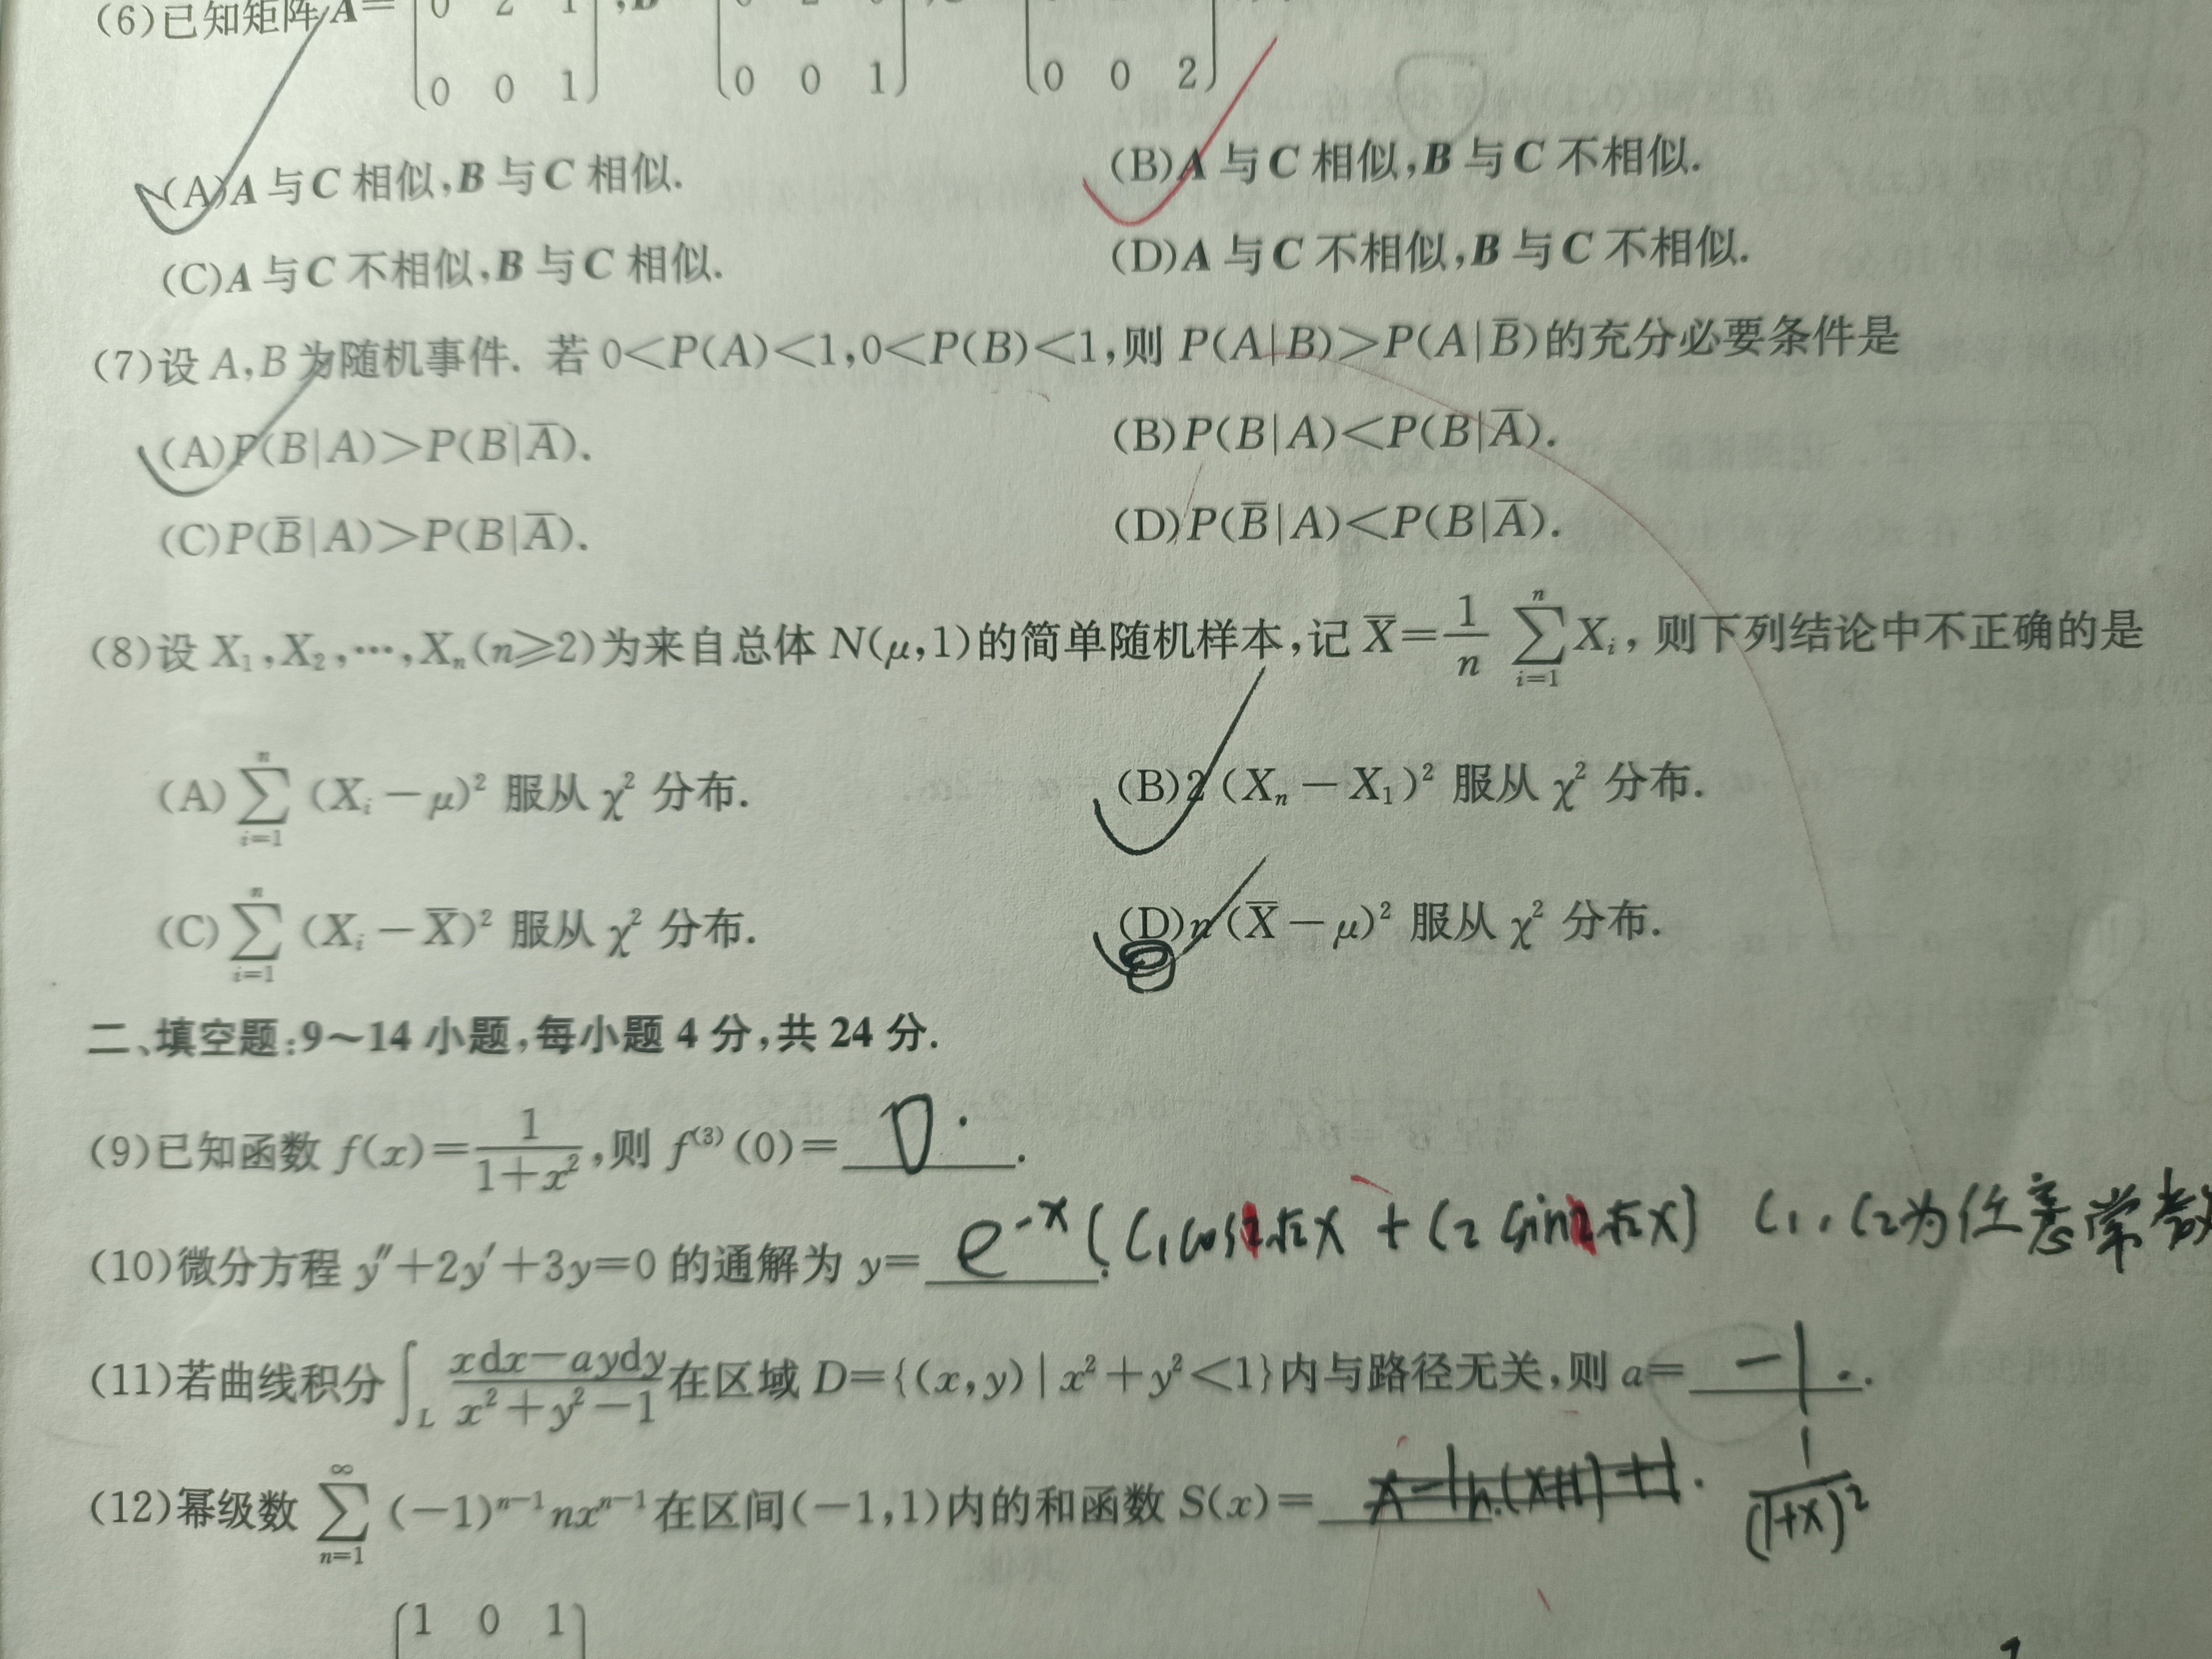 (6)已知矩阵 A= [0 2 1] , B
[0 0 1] [0 0 1] [0 0 2]
(A)A 与 C 相似,B 与 C 相似. (B)A 与 C 相似,B 与 C 不相似.
(C)A 与 C 不相似,B 与 C 相似. (D)A 与 C 不相似,B 与 C 不相似.
(7)设 A,B 为随机事件. 若 0<P(A)<1,0<P(B)<1,则 P(A|B)>P(A|B̅)的充分必要条件是
(A)P(B|A)>P(B|A̅). (B)P(B|A)<P(B|A̅).
(C)P(B̅|A)>P(B|A̅). (D)P(B̅|A)<P(B|A̅).
(8)设 X₁,X₂,⋯,Xₙ(n≥2)为来自总体 N(μ,1)的简单随机样本,记 X̅=1/n ∑_{i=1}^{n} Xᵢ, 则下列结论中不正确的是
(A)∑_{i=1}^{n} (Xᵢ−μ)² 服从 χ² 分布. (B)2(Xₙ−X₁)² 服从 χ² 分布.
(C)∑_{i=1}^{n} (Xᵢ−X̅)² 服从 χ² 分布. (D)n(X̅−μ)² 服从 χ² 分布.
二、填空题:9~14 小题,每小题 4 分,共 24 分.
(9)已知函数 f(x)=1/(1+x²),则 f⁽³⁾(0)= 0 .
(10)微分方程 y″+2y′+3y=0 的通解为 y= e^{-x}(C₁cos√2x + C₂sin√2x) C₁,C₂为任意常数
(11)若曲线积分∫_L (xdx−aydy)/(x²+y²−1)在区域 D={(x,y)|x²+y²<1}内与路径无关,则 a= −1 .
(12)幂级数 ∑_{n=1}^{∞} (−1)^{n−1}nx^{n−1}在区间(−1,1)内的和函数 S(x)= 1/(1+x)²
[1 0 1]